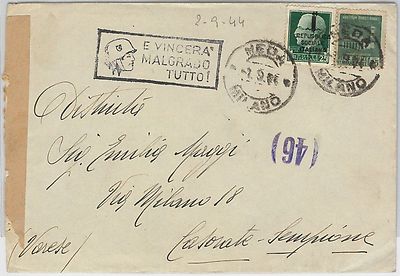 2-9-44
E VINCERA'
MALGRADO
TUTTO!
REPUBBLICA
SOCIALE
ITALIANA
MEDA
2.9.44
MILANO
MEDA
MILANO
Distinto
Sig. Emilio Maggi
Via Milano 18
(Varese) Casorate-Sempione
(46)